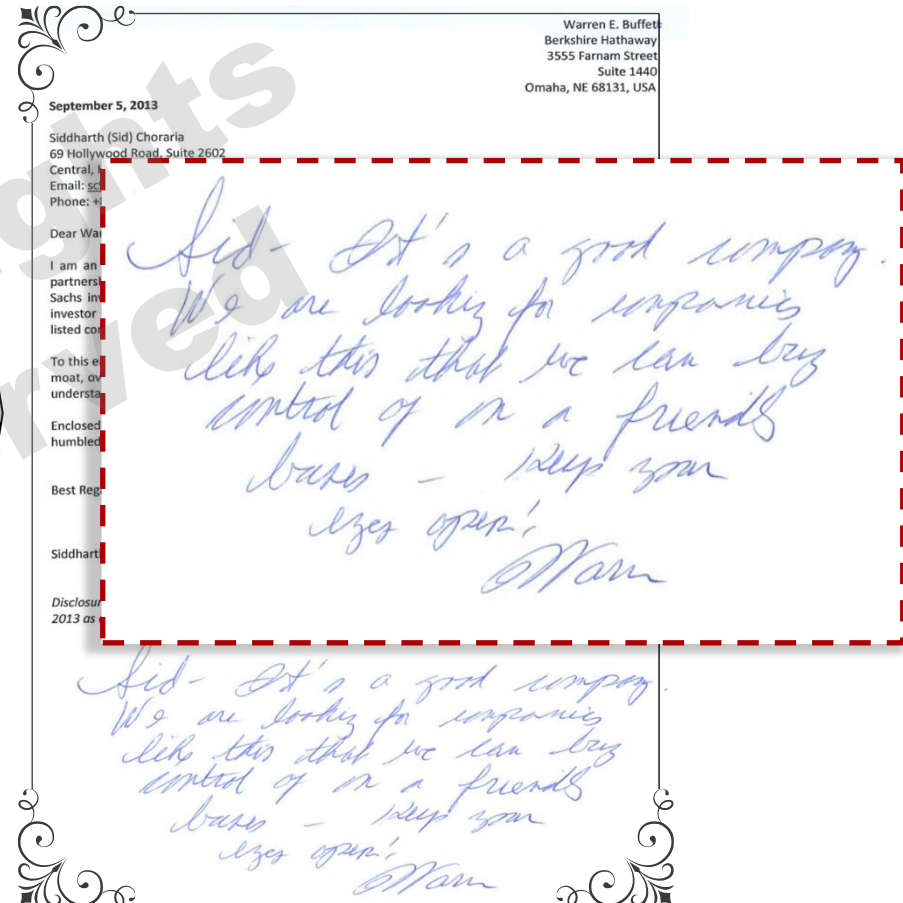 Warren E. Buffett
Berkshire Hathaway
3555 Farnam Street
Suite 1440
Omaha, NE 68131, USA
September 5, 2013
Siddharth (Sid) Choraria
69 Hollywood Road, Suite 2602
Central,
Email: sc
Phone: +
Dear War
I am an
partnersh
Sachs inv
investor
listed cor
To this e
moat, ov
understa
Enclosed
humbled
Best Reg
Siddhart
Disclosur
2013 as
Sid- It's a good company.
We are looking for companies
like this that we can buy
control of on a friendly
basis - Keep your
eyes open!
Warren
Sid- It's a good company.
We are looking for companies
like this that we can buy
control of on a friendly
basis - Keep your
eyes open!
Warren
ghts
rved